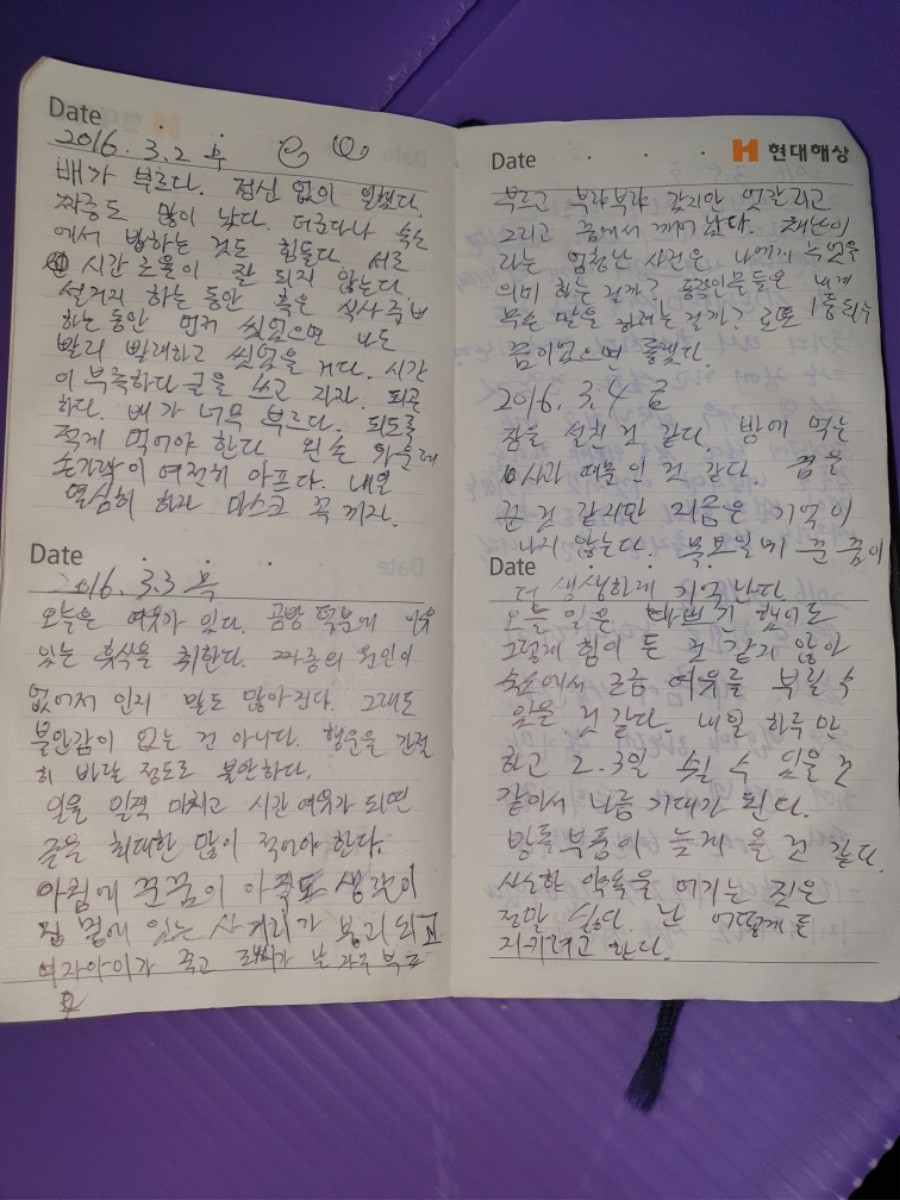 Date
2016. 3.2 수
배가 부르다. 정신 없이 일했다.
짜증도 많이 났다. 더군다나 숙소
에서 밥하는 것도 힘들다 서로
시간 조율이 잘 되지 않는다.
설거지 하는 동안 혹은 식사 준비
하는 동안 먼저 씻었으면 나도
빨리 빨래하고 씻었을 거다. 시간
이 부족하다 글을 쓰고 자자. 피곤
하다. 배가 너무 부르다. 되도록
적게 먹어야 한다. 왼손
손가락이 여전히 아프다. 내일
열심히 하자 마스크 꼭 끼자.
Date
2016. 3.3 목
오늘은 여유가 있다. 공방 덕분에 여유
있는 휴식을 취한다. 짜증의 원인이
없어져 인지 말도 많아진다. 그래도
불안감이 없는 건 아니다. 행운을 간절
히 바랄 정도로 불안하다.
일을 일찍 마치고 시간 여유가 되면
글을 최대한 많이 적어야 한다.
아침에 꾼꿈이 아직도 생각이
집 옆에 있는 사거리가 붕괴 되고
여자아이가 죽고 날 자꾸
Date
H 현대해상
부르고 부랴부랴 갔지만 엇갈리고
그리고 꿈에서 깨어 났다. 재난이
라는 엄청난 사건은 나에게 무엇을
의미 하는 걸까? 등장인물들은 내게
무슨 말을 하려는 걸까? 로또 1등 되는
꿈이었으면 좋겠다.
2016. 3.4 금
잠을 설친 것 같다. 밤에 먹는
사과 때문인 것 같다. 꿈을
꾼 것 같지만 지금은 기억이
나지 않는다. 목요일에 꾼 꿈이
Date
더 생생하게 기억난다
오늘 일은 바쁘기 했어도
그렇게 힘이 든 것 같지 않아
숙소에서 조금 여유를 부릴 수
있을 것 같다. 내일 하루만
하고 2.3일 쉴 수 있을 것
같아서 나름 기대가 된다.
방통부품이 늦게 올 것 같다.
사소한 약속을 어기는 짓은
정말 싫다. 난 어떻게든
지키려고 한다.